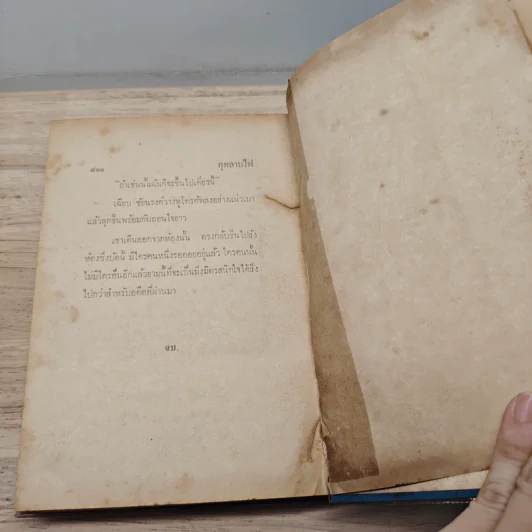 ๙๐๐ กุหลาบไฟ
"ถ้าเช่นนั้นฉันก็จะขึ้นไปเดี๋ยวนี้"
เฉียบ ชัยณรงค์วางหูโทรศัพท์ลงอย่างแผ่วเบา
แล้วลุกขึ้นพร้อมกับถอนใจยาว
เขาเดินออกจากห้องนั้น ตรงกลับขึ้นไปยัง
ห้องซึ่งบัดนี้ มีใครคนหนึ่งรอคอยอยู่แล้ว ใครคนนั้น
ไม่มีใครอื่นอีกแล้วยามนี้ที่จะเป็นมิ่งมิตรสนิทใจได้ยิ่ง
ไปกว่าสำหรับอดีตที่ผ่านมา
จบ.